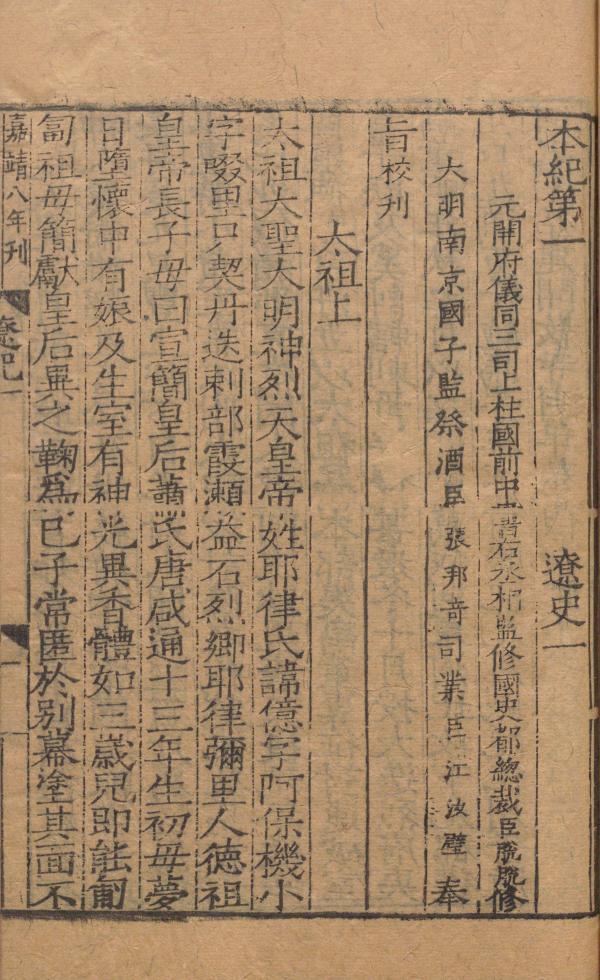 本紀第一 遼史一
元開府儀同三司上柱國前中書右丞相監修國史都總裁臣脫脫修
大明南京國子監祭酒臣張邦奇司業臣江汝璧奉
旨校刊
太祖上
太祖大聖大明神烈天皇帝姓耶律氏諱億字阿保機小
字啜里只契丹迭剌部霞瀨益石烈鄉耶律彌里人德祖
皇帝長子母曰宣簡皇后蕭氏唐咸通十三年生初母夢
日墮懷中有娠及生室有神光異香體如三歲兒即能匍
匐祖母簡獻皇后異之鞠為己子常匿於別幕塗其面不
嘉靖八年刊 遼紀一 一